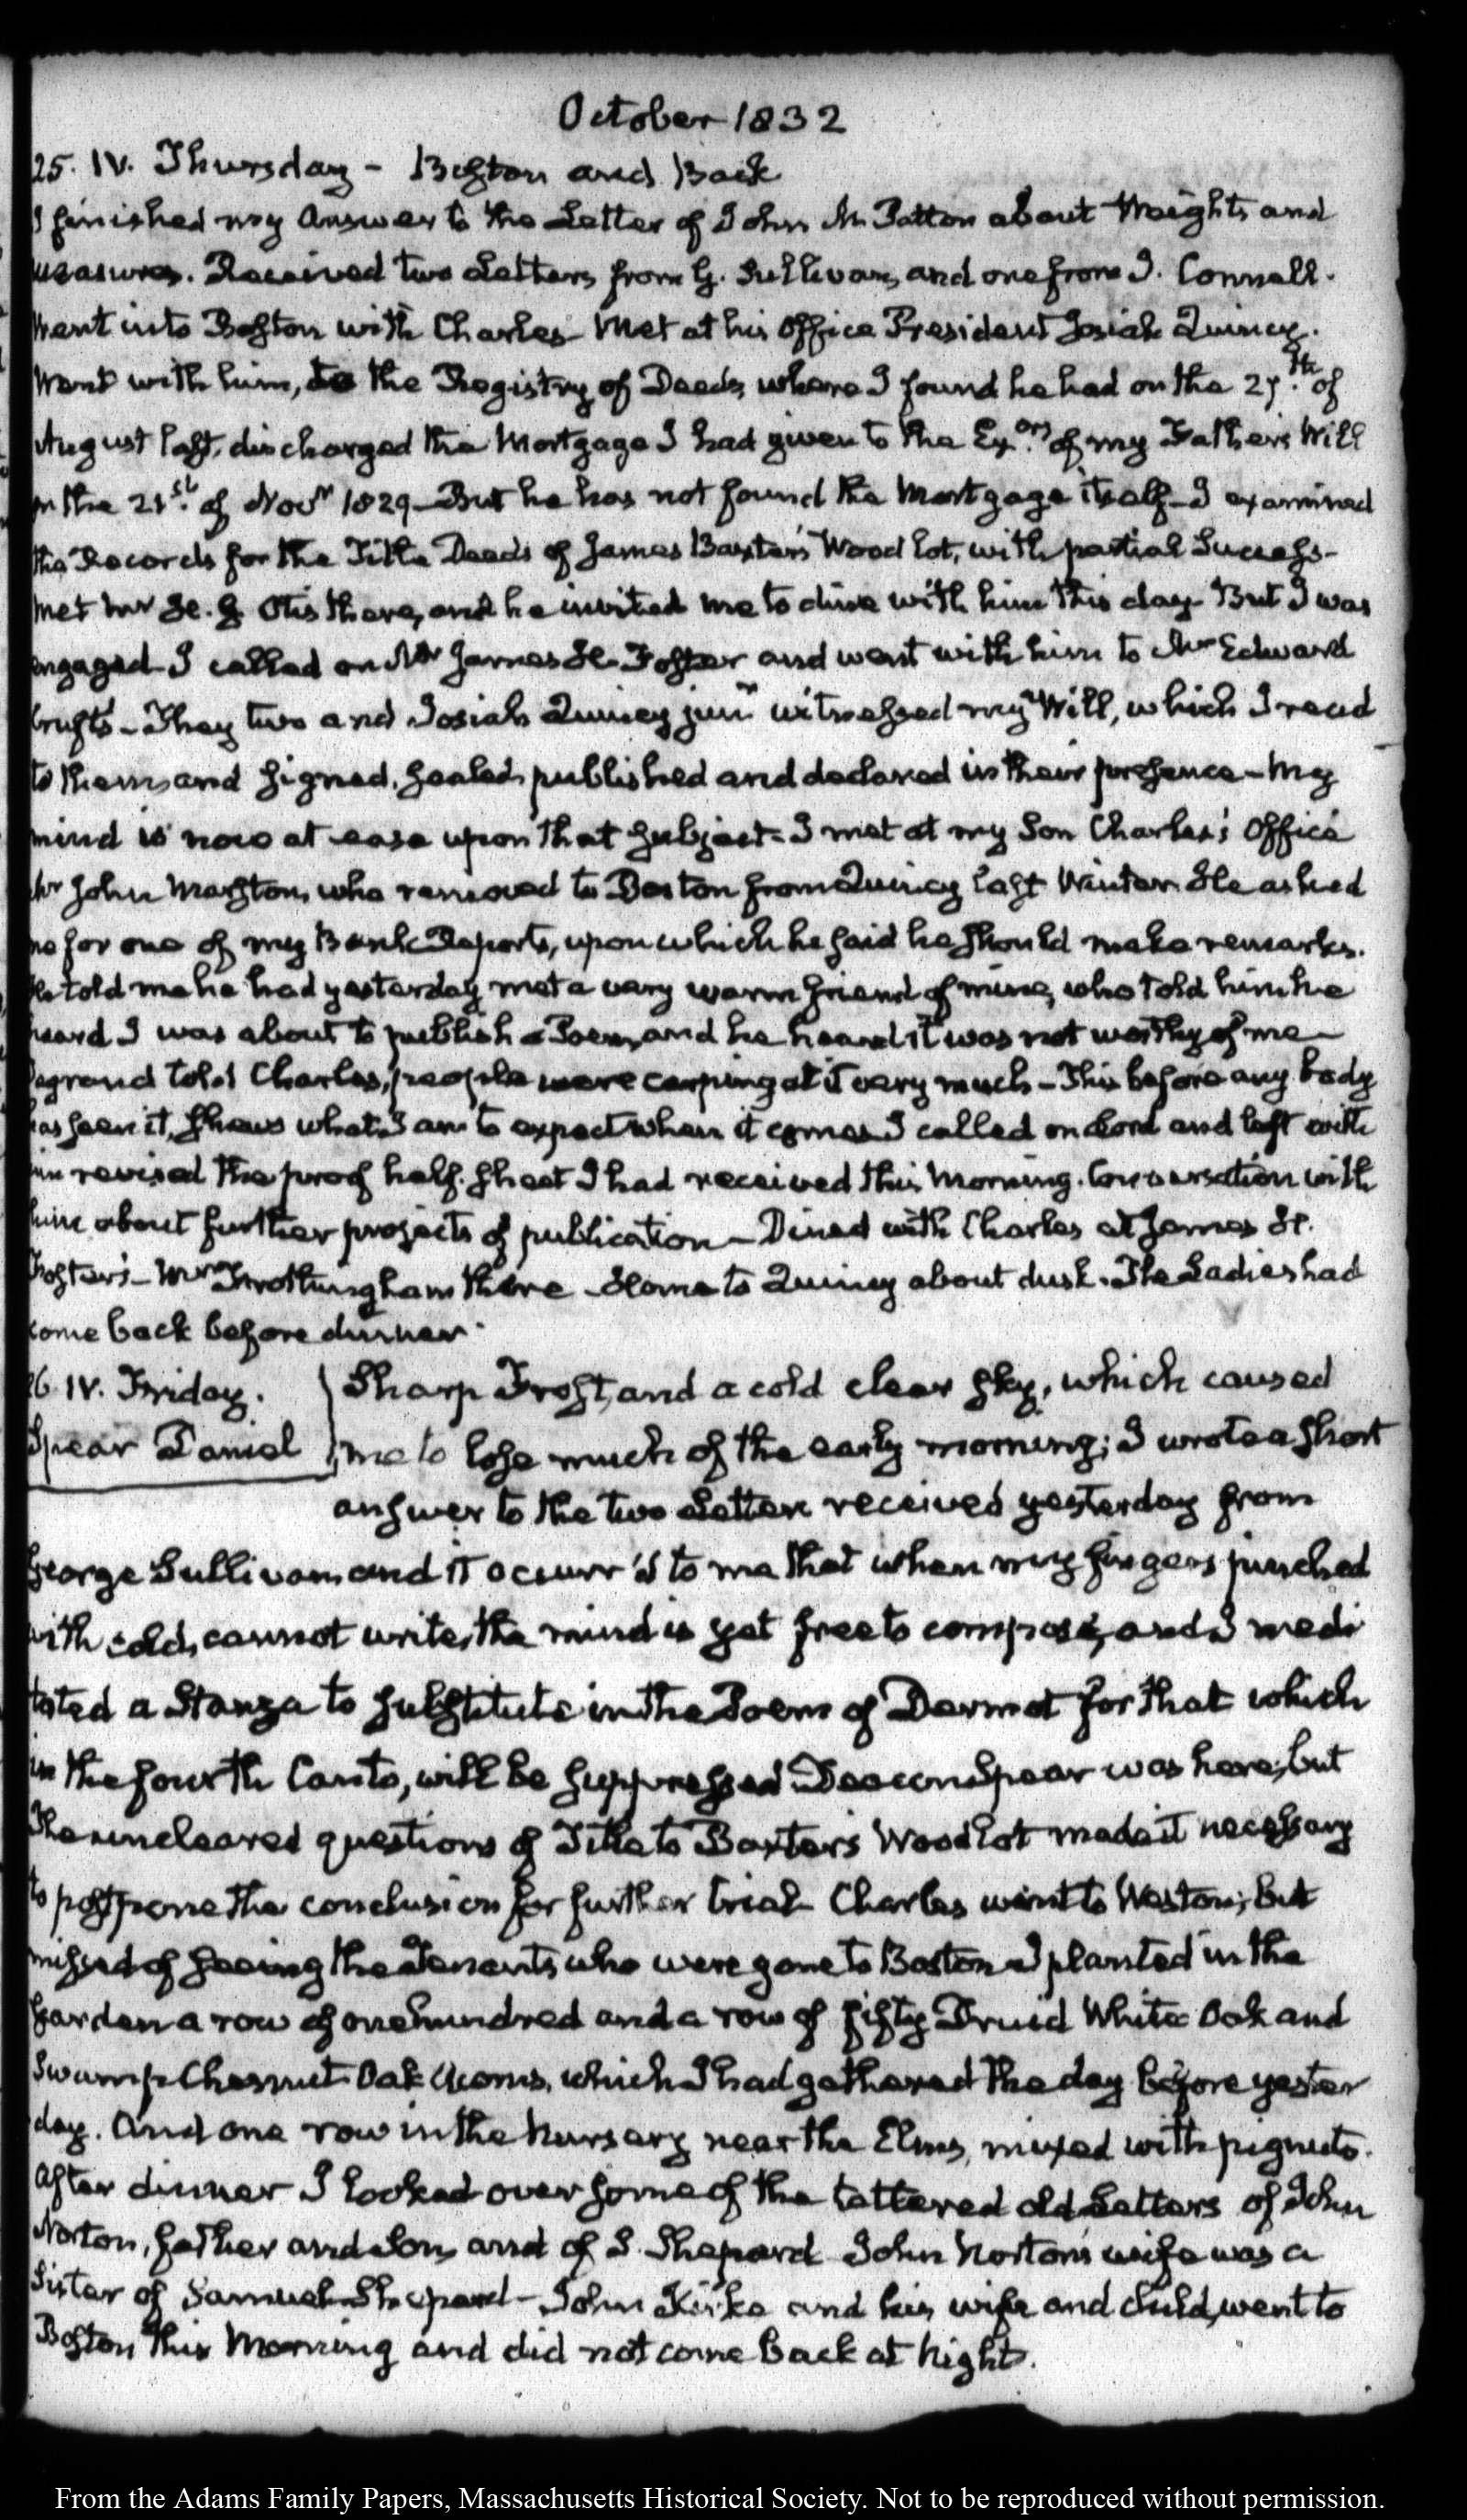 October 1832
25. IV. Thursday - Boston and Back
I finished my Answer to the Letter of John M Patton about Weights and
measures. Received two Letters from G. Sullivan, and one from J. Connell.
Went into Boston with Charles - Met at his Office President Josiah Quincy.
Went with him, to the Registry of Deeds, where I found he had on the 27th. of
August last, discharged the Mortgage I had given to the Exors. of my Father's Will
on the 21st. of Novr 1829 - But he has not found the Mortgage itself - I examined
the Records for the Title Deeds of James Baxter's Wood lot, with partial Success -
Met Mr H. G Otis there, and he invited me to dine with him this day - But I was
engaged - I called on Mr James H. Foster and went with him to Mr Edward
Cruft's - They two and Josiah Quincy junr. witnessed my Will, which I read
to them, and signed, sealed, published and declared in their presence - My
mind is now at ease upon that subject - I met at my Son Charles's Office
Mr John Marston, who removed to Boston from Quincy last Winter. He asked
me for one of my Bank Reports, upon which he said he should make remarks.
He told me he had yesterday met a very warm friend of mine, who told him he
heard I was about to publish a Poem, and he heard it was not worthy of me -
Degrand told Charles, people were carping at it very much - This before any body
has seen it, shews what I am to expect when it comes. I called on Lord and left with
him revised the proof half-sheet I had received this Morning. Conversation with
him about further projects of publication - Dined with Charles at James H.
Foster's - Mrs Frothingham there - Home to Quincy about dusk. The Ladies had
come back before dinner.
26. IV. Friday. Sharp Frost, and a cold clear sky, which caused
Spear Daniel me to lose much of the early morning; I wrote a short
answer to the two Letters received yesterday from
George Sullivan, and it occurr'd to me that when my fingers pinched
with cold, cannot write, the mind is yet free to compose, and I medi
tated a Stanza to substitute in the Poem of Dermot for that which
in the fourth Canto, will be suppressed. Deacon Spear was here; but
the uncleared questions of Title to Baxter's Wood lot made it necessary
to postpone the conclusion for further trial - Charles went to Weston; but
missed of seeing the Tenants who were gone to Boston - I planted in the
Garden a row of one hundred and a row of fifty Druid White Oak and
Swamp Chesnut Oak Acorns, which I had gathered the day before yester
day. And one row in the Nursery near the Elms, mixed with pignuts.
After dinner I looked over some of the tattered old Letters of John
Norton, father and Son, and of S. Shepard - John Norton's wife was a
Sister of Samuel Shepard - John Kirke and his wife and child, went to
Boston this Morning and did not come back at Night.
From the Adams Family Papers, Massachusetts Historical Society. Not to be reproduced without permission.